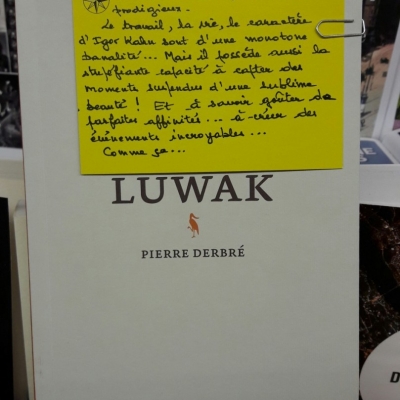 prodigieux.
Le travail, la vie, le caractère
d'Igor Kahn sont d'une monotone
banalité... Mais il possède aussi la
stupéfiante capacité à capter des
moments suspendus d'une sublime
beauté ! Et à savoir goûter de
parfaites affinités... à créer des
événements incroyables...
Comme ça...
LUWAK
PIERRE DERBRÉ
D